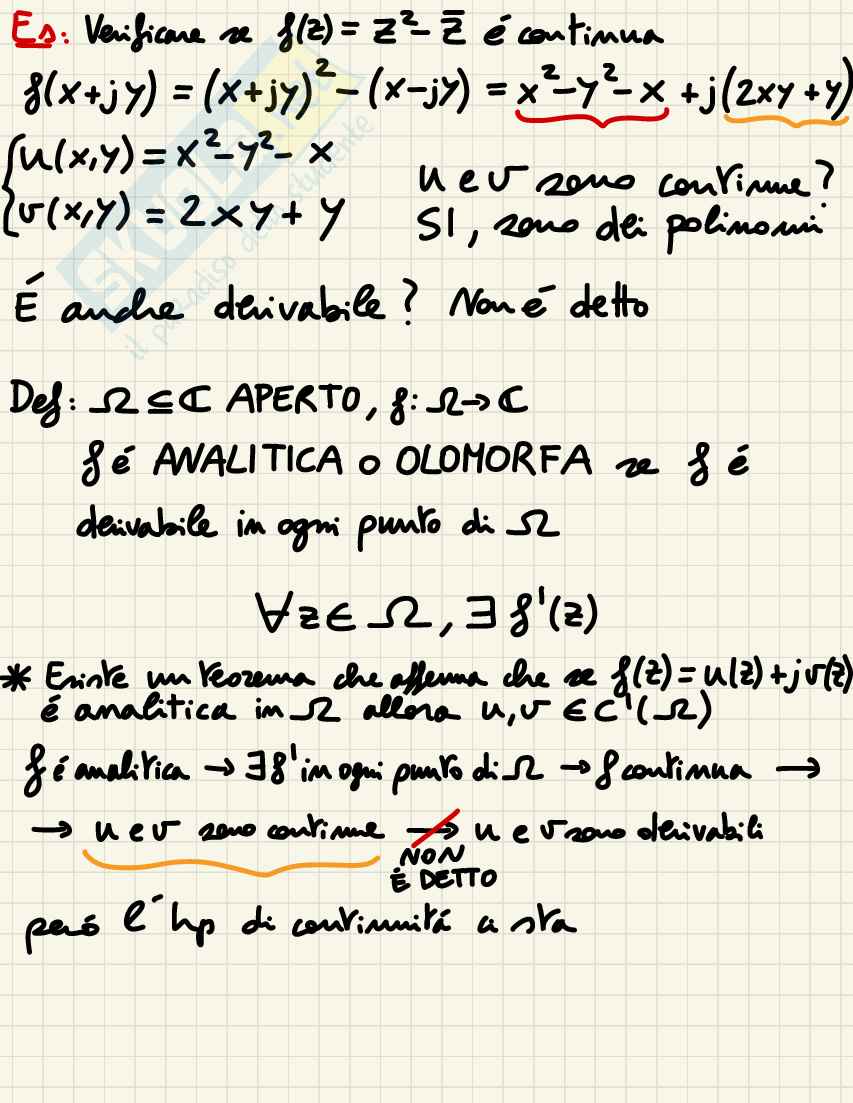 Es: Verificare se f(z) = z² - z̅ é continua
f(x+jy) = (x+jy)² - (x-jy) = x²-y²-x + j(2xy+y)
u(x,y) = x²-y²-x
v(x,y) = 2xy + y
u e v sono continue?
SI, sono dei polinomi
É anche derivabile? Non é detto
Def: Ω ⊆ ℂ APERTO, f: Ω → ℂ
f é ANALITICA o OLOMORFA se f é
derivabile in ogni punto di Ω
∀ z ∈ Ω, ∃ f'(z)
* Esiste un teorema che afferma che se f(z) = u(z) + jv(z)
é analitica in Ω allora u, v ∈ C¹(Ω)
f é analitica → ∃ f' in ogni punto di Ω → f continua →
→ u e v sono continue → u e v sono derivabili
NON
È DETTO
peró l'hp di continuitá ci sta
SKUOLA.net
il paradiso dello studente